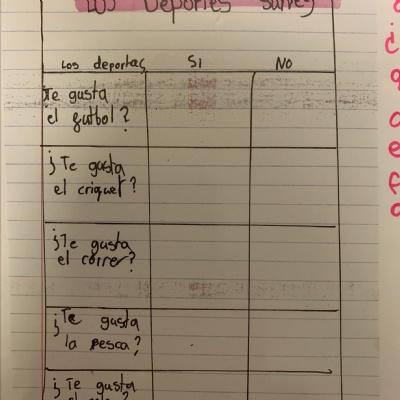 Los Deportes Survey
Los deportes SI NO
Te gusta
el futbol?
¿Te gusta
el criquet?
¿Te gusta
el correr?
¿Te gusta
la pesca?
¿Te gusta